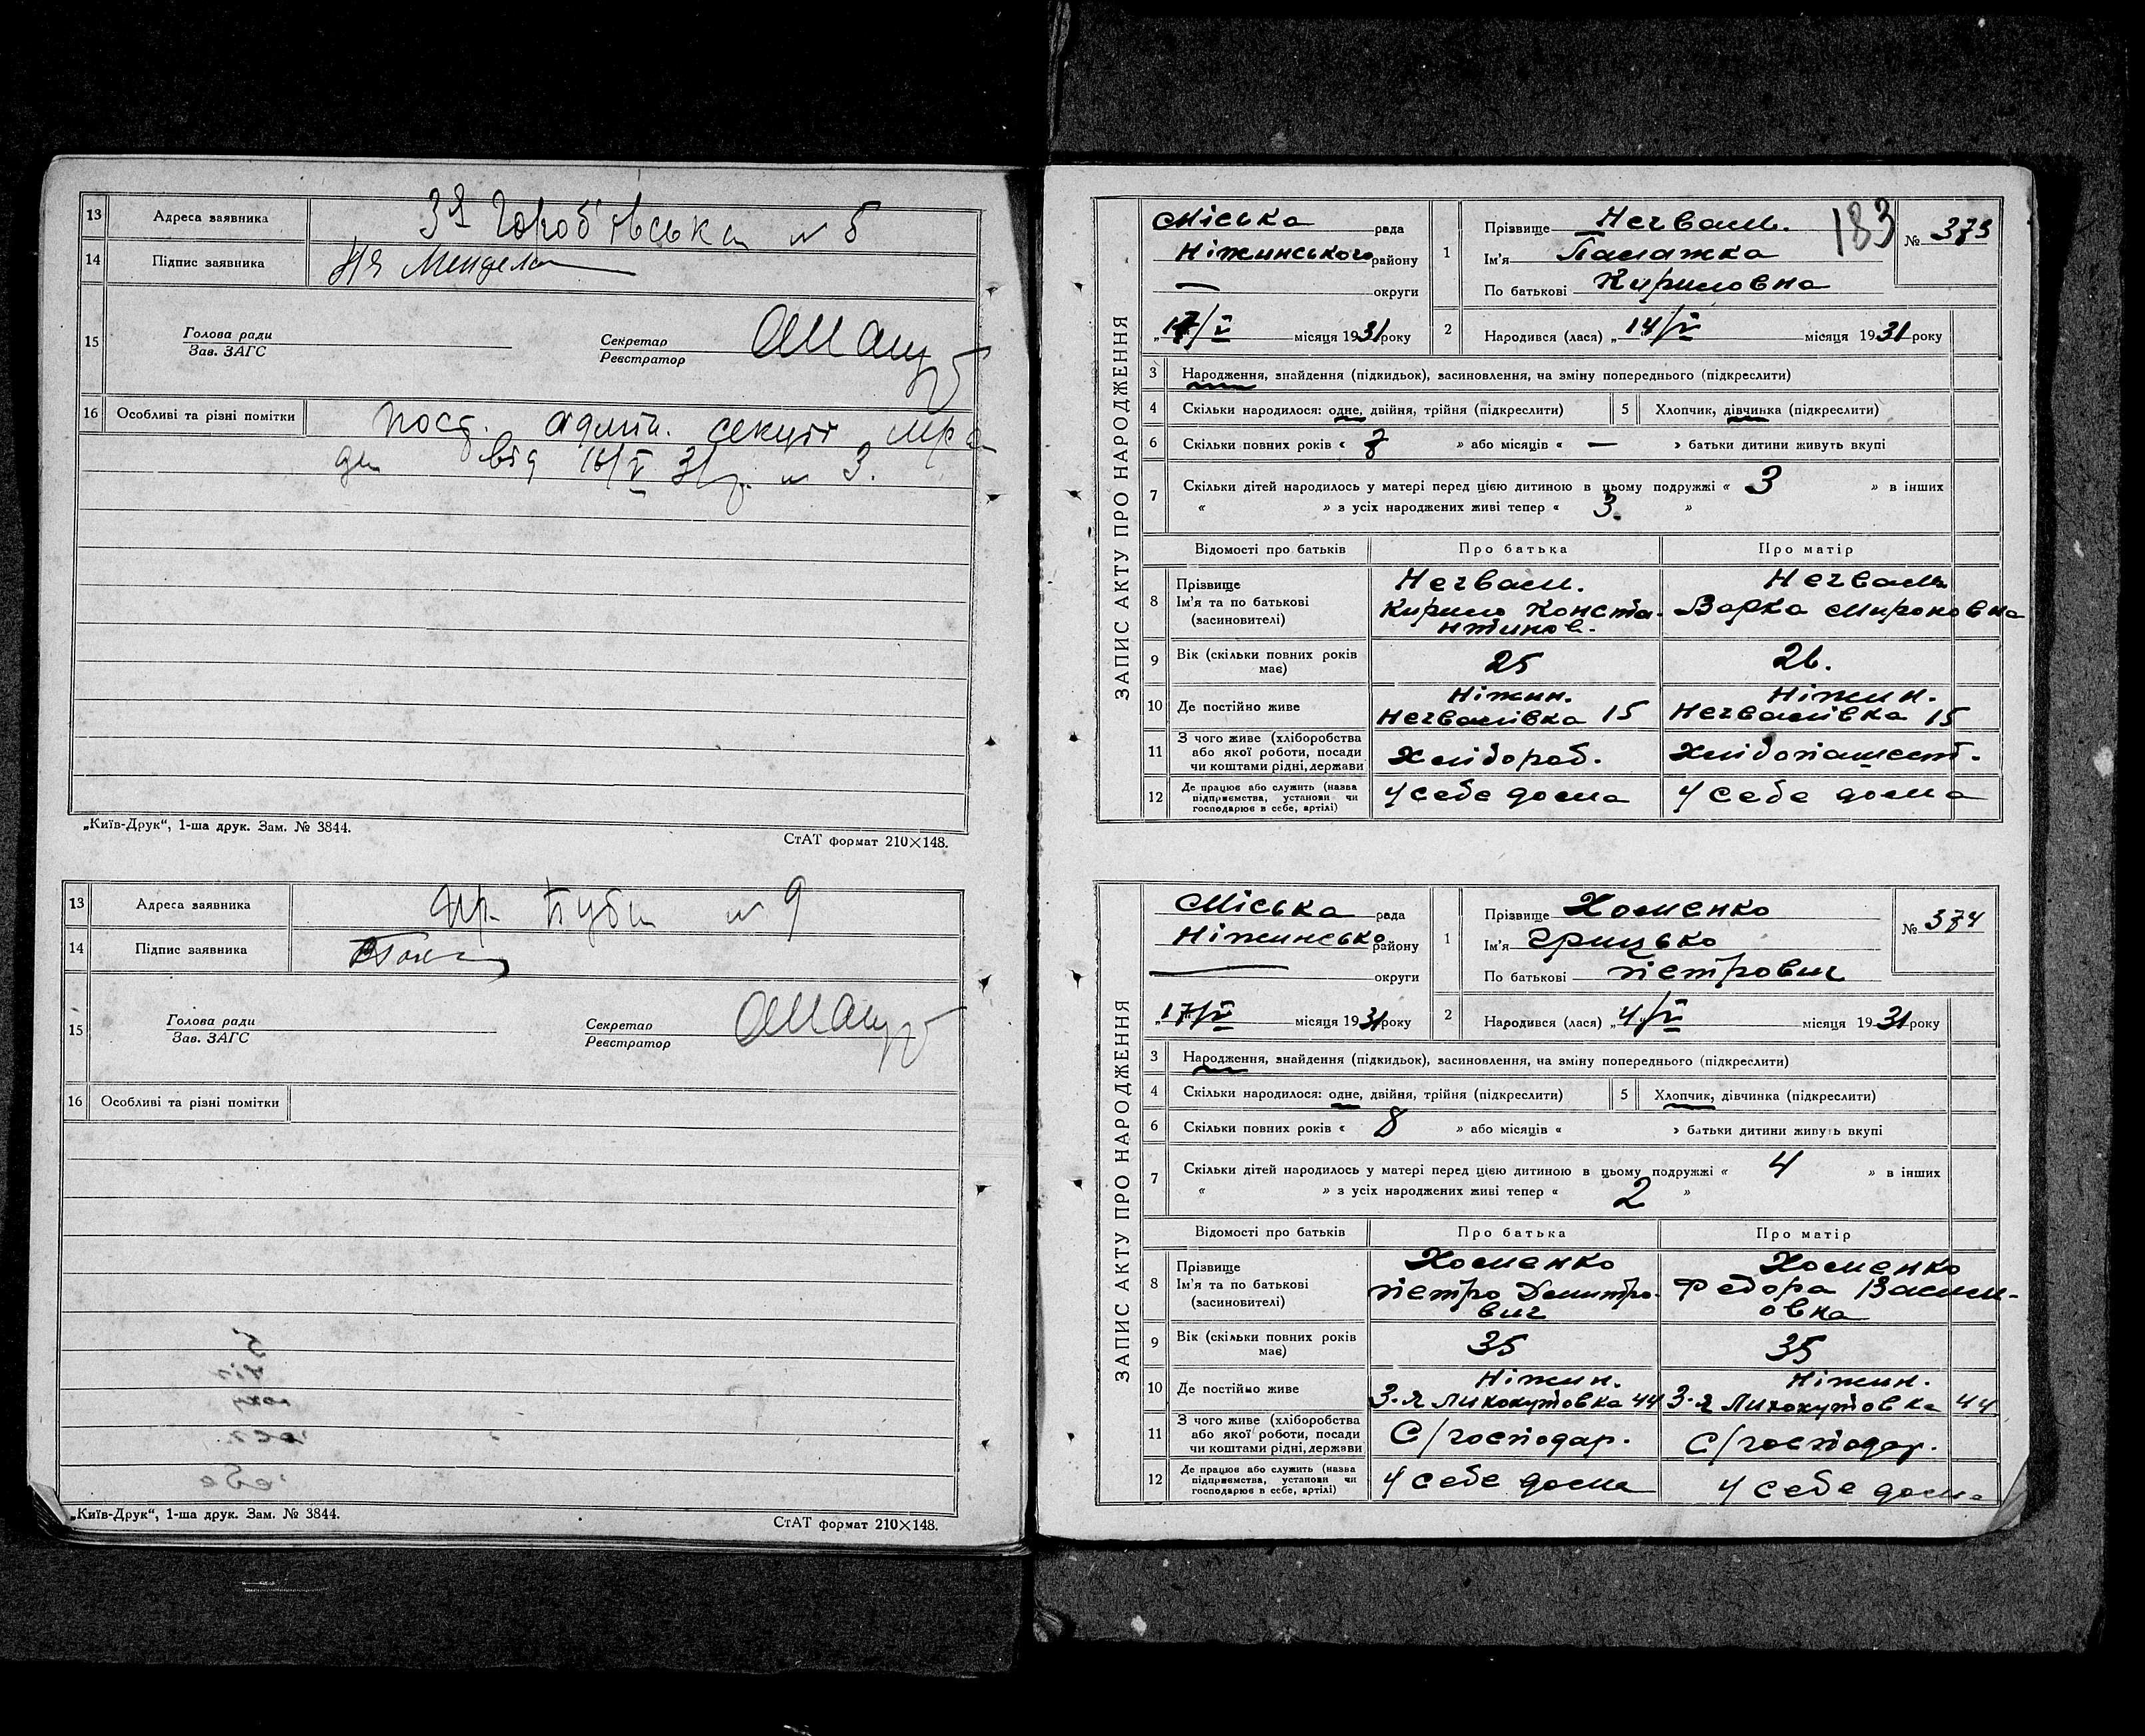 13 Адреса заявника 3я Горобʼївська № 5
14 Підпис заявника
15 Голова ради Секретар
Зав. ЗАГС Реєстратор
16 Особливі та різні помітки пост. адмін. секції мра
ди від 16/V 31 р. № 3.
„Київ-Друк“, 1-ша друк. Зам. № 3844.
СтАТ формат 210×148.
13 Адреса заявника № 9
14 Підпис заявника
15 Голова ради Секретар
Зав. ЗАГС Реєстратор
16 Особливі та різні помітки
„Київ-Друк“, 1-ша друк. Зам. № 3844.
СтАТ формат 210×148.
183
ЗАПИС АКТУ ПРО НАРОДЖЕННЯ
Міська рада
Ніжинського району
— округи
„17/V місяця 1931 року
1 Прізвище Негваль.
Ім'я Палажка
По батькові Кириловна
№ 373
2 Народився (лася) „14/V місяця 1931 року
3 Народження, знайдення (підкидьок), засиновлення, на зміну попереднього (підкреслити)
4 Скільки народилося: одне, двійня, трійня (підкреслити) 5 Хлопчик, дівчинка (підкреслити)
6 Скільки повних років « 7 » або місяців « — » батьки дитини живуть вкупі
7 Скільки дітей народилось у матері перед цією дитиною в цьому подружжі « 3 » в інших
« » з усіх народжених живі тепер « 3. »
Відомості про батьків Про батька Про матір
8 Прізвище Негваль. Негваль
Ім'я та по батькові Кирило Конста- Варка Мироновна
(засиновителі) нтинов.
9 Вік (скільки повних років має) 25 26.
10 Де постійно живе Ніжин. Ніжин.
Негвалівка 15 Негвалівка 15
11 З чого живе (хліборобства
або якої роботи, посади
чи коштами рідні, держави Хлібороб. Хлібопашест.
12 Де працює або служить (назва
підприємства, установи чи
господарює в себе, артілі) У себе дома У себе дома
ЗАПИС АКТУ ПРО НАРОДЖЕННЯ
Міська рада
Ніжинсько району
— округи
„17/V місяця 1931 року
1 Прізвище Хоменко
Ім'я Грицько
По батькові Петрович
№ 374
2 Народився (лася) „4/V місяця 1931 року
3 Народження, знайдення (підкидьок), засиновлення, на зміну попереднього (підкреслити)
4 Скільки народилося: одне, двійня, трійня (підкреслити) 5 Хлопчик, дівчинка (підкреслити)
6 Скільки повних років « 8 » або місяців « » батьки дитини живуть вкупі
7 Скільки дітей народилось у матері перед цією дитиною в цьому подружжі « 4 » в інших
« » з усіх народжених живі тепер « 2 »
Відомості про батьків Про батька Про матір
8 Прізвище Хоменко Хоменко
Ім'я та по батькові Петро Дмитро- Федора Васил-
(засиновителі) вич овна
9 Вік (скільки повних років має) 35 35
10 Де постійно живе Ніжин. Ніжин.
3-я Ликокутовка 44 3-я Ликокутовка 44
11 З чого живе (хліборобства
або якої роботи, посади
чи коштами рідні, держави С/господар. С/господар.
12 Де працює або служить (назва
підприємства, установи чи
господарює в себе, артілі) У себе дома У себе дома